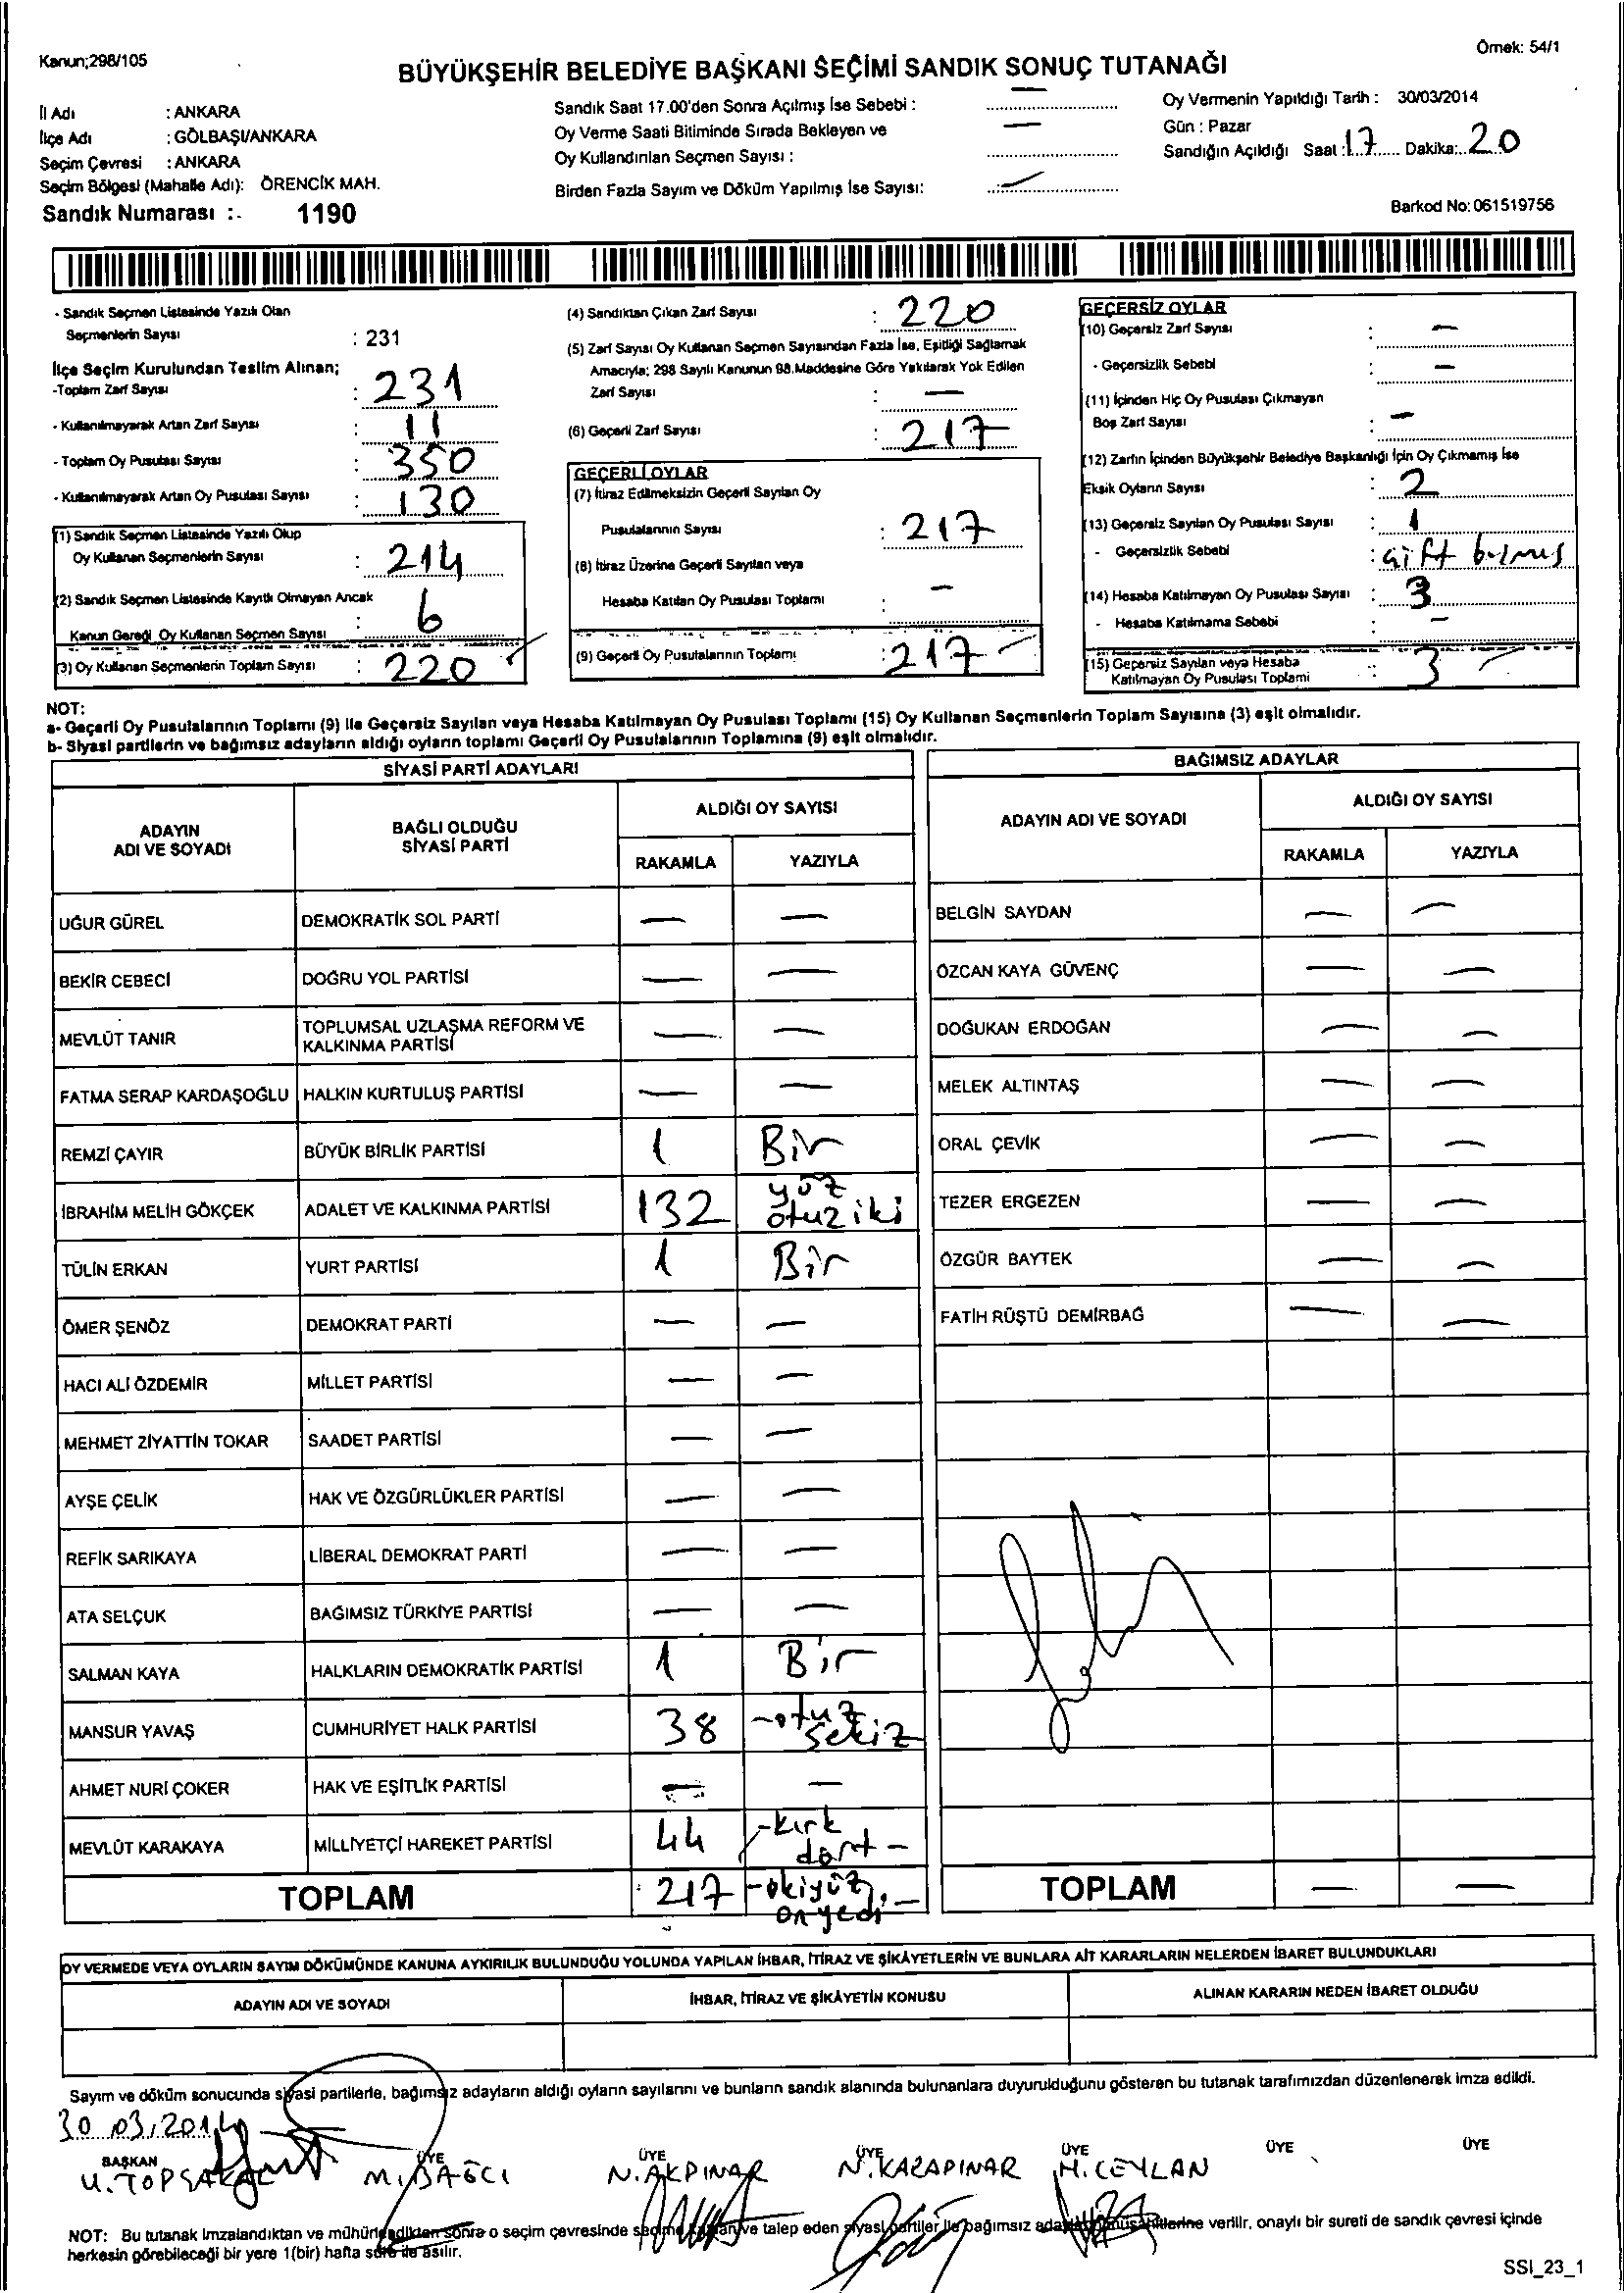 Kanun;298/105
Örnek: 54/1
BÜYÜKŞEHİR BELEDİYE BAŞKANI SEÇİMİ SANDIK SONUÇ TUTANAĞI
İl Adı : ANKARA
İlçe Adı : GÖLBAŞI/ANKARA
Seçim Çevresi : ANKARA
Seçim Bölgesi (Mahalle Adı): ÖRENCİK MAH.
Sandık Numarası :- 1190
Sandık Saat 17.00'den Sonra Açılmış İse Sebebi : —
Oy Verme Saati Bitiminde Sırada Bekleyen ve
Oy Kullandırılan Seçmen Sayısı : —
Birden Fazla Sayım ve Döküm Yapılmış İse Sayısı: —
Oy Vermenin Yapıldığı Tarih : 30/03/2014
Gün : Pazar
Sandığın Açıldığı Saat :17 Dakika: 20
Barkod No: 061519756
- Sandık Seçmen Listesinde Yazılı Olan
Seçmenlerin Sayısı : 231
İlçe Seçim Kurulundan Teslim Alınan;
-Toplam Zarf Sayısı : 231
- Kullanılmayarak Artan Zarf Sayısı : 11
- Toplam Oy Pusulası Sayısı : 350
- Kullanılmayarak Artan Oy Pusulası Sayısı : 130
(1) Sandık Seçmen Listesinde Yazılı Olup
Oy Kullanan Seçmenlerin Sayısı : 214
(2) Sandık Seçmen Listesinde Kayıtlı Olmayan Ancak
Kanun Gereği Oy Kullanan Seçmen Sayısı : 6
(3) Oy Kullanan Seçmenlerin Toplam Sayısı : 220
(4) Sandıktan Çıkan Zarf Sayısı : 220
(5) Zarf Sayısı Oy Kullanan Seçmen Sayısından Fazla İse, Eşitliği Sağlamak
Amacıyla; 298 Sayılı Kanunun 98.Maddesine Göre Yakılarak Yok Edilen
Zarf Sayısı : —
(6) Geçerli Zarf Sayısı : 217
GEÇERLİ OYLAR
(7) İtiraz Edilmeksizin Geçerli Sayılan Oy
Pusulalarının Sayısı : 217
(8) İtiraz Üzerine Geçerli Sayılan veya
Hesaba Katılan Oy Pusulası Toplamı : —
(9) Geçerli Oy Pusulalarının Toplamı : 217
GEÇERSİZ OYLAR
(10) Geçersiz Zarf Sayısı : —
- Geçersizlik Sebebi : —
(11) İçinden Hiç Oy Pusulası Çıkmayan
Boş Zarf Sayısı : —
(12) Zarfın İçinden Büyükşehir Belediye Başkanlığı İçin Oy Çıkmamış İse
Eksik Oyların Sayısı : 2
(13) Geçersiz Sayılan Oy Pusulası Sayısı : 1
- Geçersizlik Sebebi : çift
(14) Hesaba Katılmayan Oy Pusulası Sayısı : 3
- Hesaba Katılmama Sebebi : —
(15) Geçersiz Sayılan veya Hesaba
Katılmayan Oy Pusulası Toplamı : 3
NOT:
a- Geçerli Oy Pusulalarının Toplamı (9) ile Geçersiz Sayılan veya Hesaba Katılmayan Oy Pusulası Toplamı (15) Oy Kullanan Seçmenlerin Toplam Sayısına (3) eşit olmalıdır.
b- Siyasi partilerin ve bağımsız adayların aldığı oyların toplamı Geçerli Oy Pusulalarının Toplamına (9) eşit olmalıdır.
SİYASİ PARTİ ADAYLARI
ADAYIN ADI VE SOYADI
BAĞLI OLDUĞU SİYASİ PARTİ
ALDIĞI OY SAYISI
RAKAMLA YAZIYLA
UĞUR GÜREL DEMOKRATİK SOL PARTİ — —
BEKİR CEBECİ DOĞRU YOL PARTİSİ — —
MEVLÜT TANIR TOPLUMSAL UZLAŞMA REFORM VE KALKINMA PARTİSİ — —
FATMA SERAP KARDAŞOĞLU HALKIN KURTULUŞ PARTİSİ — —
REMZİ ÇAYIR BÜYÜK BİRLİK PARTİSİ 1 Bir
İBRAHİM MELİH GÖKÇEK ADALET VE KALKINMA PARTİSİ 132 yüz otuz iki
TÜLİN ERKAN YURT PARTİSİ 1 Bir
ÖMER ŞENÖZ DEMOKRAT PARTİ — —
HACI ALİ ÖZDEMİR MİLLET PARTİSİ — —
MEHMET ZİYATTİN TOKAR SAADET PARTİSİ — —
AYŞE ÇELİK HAK VE ÖZGÜRLÜKLER PARTİSİ — —
REFİK SARIKAYA LİBERAL DEMOKRAT PARTİ — —
ATA SELÇUK BAĞIMSIZ TÜRKİYE PARTİSİ — —
SALMAN KAYA HALKLARIN DEMOKRATİK PARTİSİ 1 Bir
MANSUR YAVAŞ CUMHURİYET HALK PARTİSİ 38 -otuz sekiz
AHMET NURİ ÇOKER HAK VE EŞİTLİK PARTİSİ — —
MEVLÜT KARAKAYA MİLLİYETÇİ HAREKET PARTİSİ 44 -kırk dört-
TOPLAM 217 -ikiyüz onyedi-
BAĞIMSIZ ADAYLAR
ADAYIN ADI VE SOYADI
ALDIĞI OY SAYISI
RAKAMLA YAZIYLA
BELGİN SAYDAN — —
ÖZCAN KAYA GÜVENÇ — —
DOĞUKAN ERDOĞAN — —
MELEK ALTINTAŞ — —
ORAL ÇEVİK — —
TEZER ERGEZEN — —
ÖZGÜR BAYTEK — —
FATİH RÜŞTÜ DEMİRBAĞ — —
TOPLAM — —
OY VERMEDE VEYA OYLARIN SAYIM DÖKÜMÜNDE KANUNA AYKIRILIK BULUNDUĞU YOLUNDA YAPILAN İHBAR, İTİRAZ VE ŞİKÂYETLERİN VE BUNLARA AİT KARARLARIN NELERDEN İBARET BULUNDUKLARI
ADAYIN ADI VE SOYADI İHBAR, İTİRAZ VE ŞİKÂYETİN KONUSU ALINAN KARARIN NEDEN İBARET OLDUĞU
Sayım ve döküm sonucunda siyasi partilerle, bağımsız adayların aldığı oyların sayılarını ve bunların sandık alanında bulunanlara duyurulduğunu gösteren bu tutanak tarafımızdan düzenlenerek imza edildi.
30.03.2014
BAŞKAN ÜYE ÜYE ÜYE ÜYE ÜYE ÜYE
U.TOPSAKAL M.BAĞCI N.AKPINAR N.KARAPINAR H.CEYLAN
NOT: Bu tutanak imzalandıktan ve mühürlendikten sonra o seçim çevresinde seçime katılan ve talep eden siyasi partiler ile bağımsız aday müşahitlerine verilir, onaylı bir sureti de sandık çevresi içinde
herkesin görebileceği bir yere 1(bir) hafta süre ile asılır.
SSI_23_1